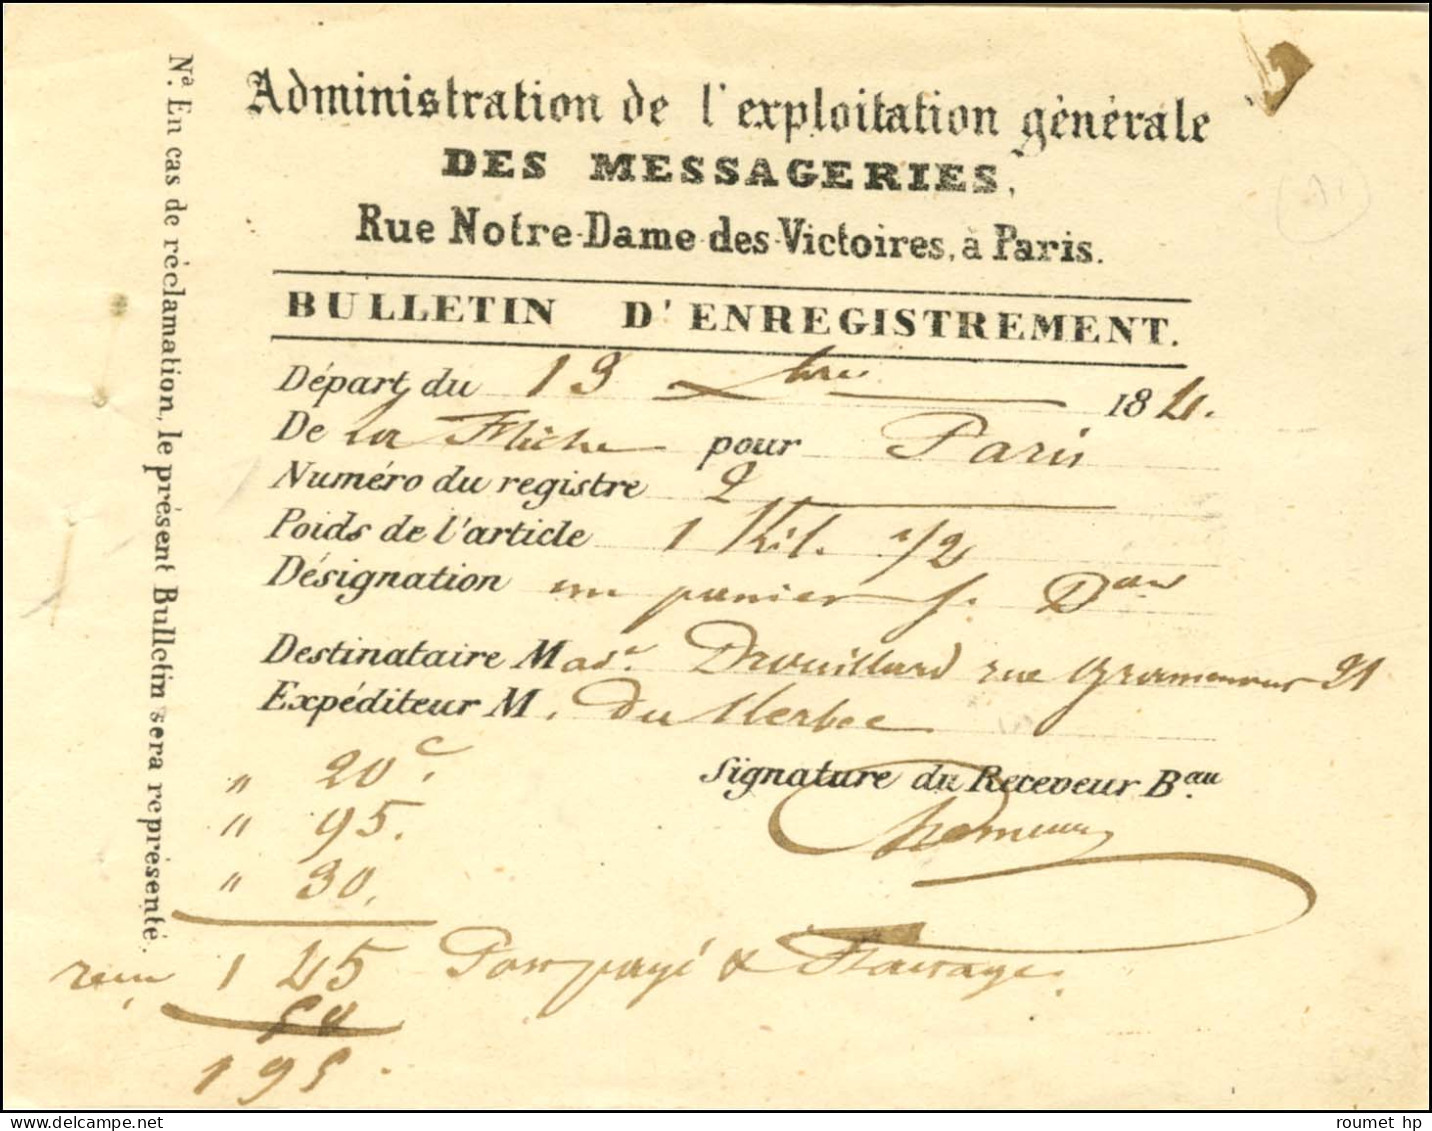 Administration de l'exploitation générale
DES MESSAGERIES,
Rue Notre-Dame-des-Victoires, à Paris.
BULLETIN D'ENREGISTREMENT.
Départ du 13 Xbre 184.
De La Flèche pour Paris
Numéro du registre 2
Poids de l'article 1 Kil. 1/2
Désignation un panier f.
Destinataire Made Drouillard rue 21
Expéditeur M. Du
Signature du Receveur Bau
" 20 c.
" 95.
" 30.
1 45 Port payé & Factage.
50
1 95.
Na. En cas de réclamation, le présent Bulletin sera représenté.
A1
roumet hp